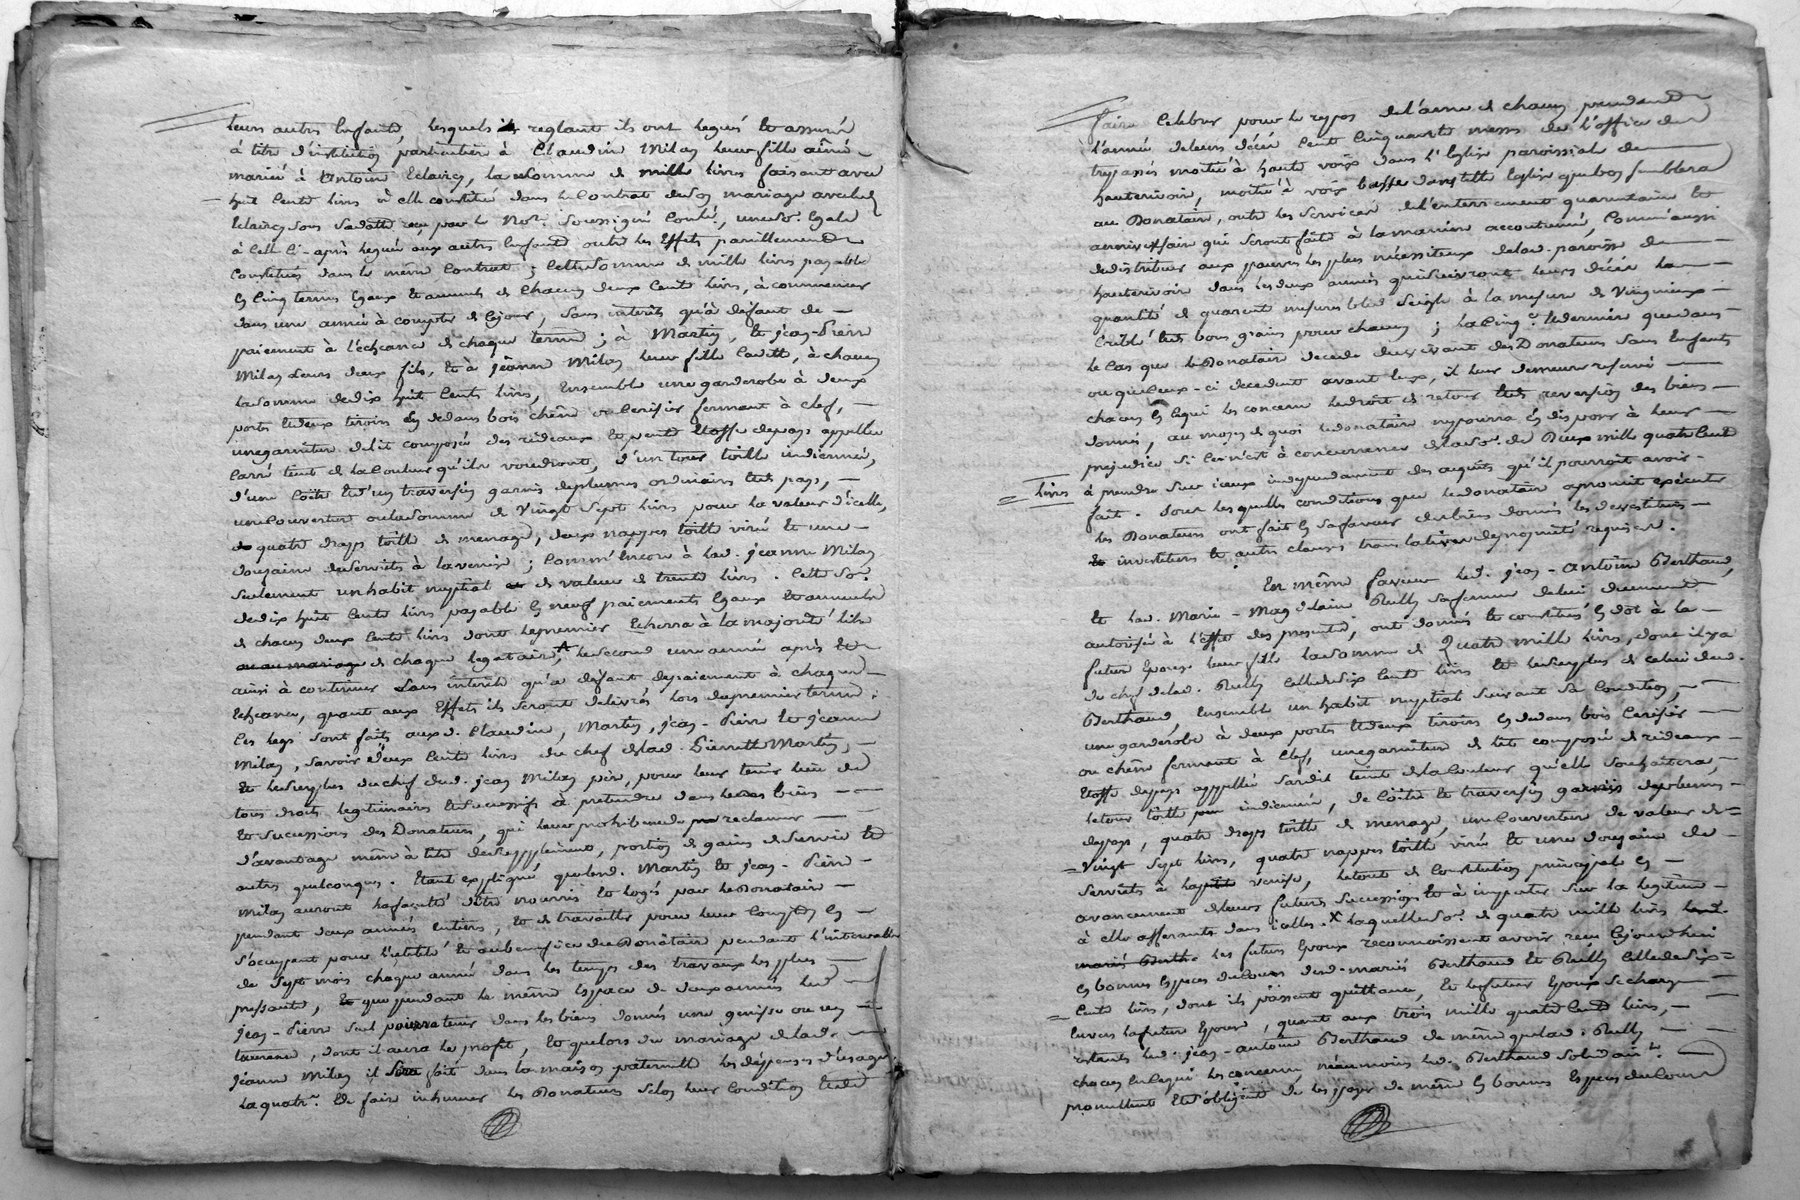 leurs autres Enfants, lesquels reglant ils ont legués et assuré
à titre d'institution particulière à Claudine Milan leur fille aînée
mariée à Antoine Eclaircy, la somme de mille livres faisant avec
huit Cents livres à elle constitué dans le Contrat de son mariage avec led.
Eclaircy sous sa datte reçu par le Nore. Soussigné Conté, une so. Egale
à Celle Ci-après leguée aux autres Enfants outre les Effets pareillement
Constitués dans le même Contrat; cette somme de mille livres payable
En Cinq termes Egaux et annuels de Chacun deux Cents livres, à commencer
dans une année à compter de Cejour, sans interêts qu'à défaut de
paiement à l'échéance de chaque terme; à Martin, et jean-Pierre
Milan Leurs deux fils, et à jeanne Milan leur fille Cadette, à chacun
la somme de dix huit Cents livres, Ensemble une garderobe à deux
portes et deux tiroirs En dedans bois chêne ou Cerisier fermant à clef,
une garniture de lit composée des rideaux et pente Etoffe de pays appellée
Carré teint de la Couleur qu'ils voudront, d'un tour toille indienne,
d'une Coëte et d'un traversin garnis de plumes ordinaires dud. pays,
une Couverture ou la somme de Vingt Sept livres pour la valeur d'icelle,
quatre draps toille de menage, deux nappes toille virée et une
douzaine de Serviets à la venise; Comm'Encore à lad. jeanne Milan
seulement un habit nuptial de valeur de trente livres. Cette So.
de dix huit Cents livres payable En neuf paiements Egaux et annuels
de chacun deux Cents livres dont le premier Echerra à la majorité
ou au mariage de chaque legataire, le second une année après et
ainsi à continuer Sans interêts qu'à défaut de paiement à chaque
Echeance, quant aux Effets ils seront delivrés lors du premier terme:
Ces legs sont faits auxd. Claudine, Martin, jean-Pierre et jeanne
Milan, savoir deux Cents livres du chef de lad. Pierrette Martin,
et le Surplus du chef dud. jean Milan père, pour leur tenir lieu de
tous droits legitimaires et successifs à pretendre dans les biens
et sucessions des Donateurs, qui leur prohibent de reclamer
d'avantage même à titre de Supplement, portion de gains de Survie et
autres quelconques. Etant expliqué que lesd. Martin et jean-Pierre
Milan auront la faculté d'être nourris et logés par le Donataire
pendant deux années Entieres, et de travailler pour leur Compte En
s'occupant pour l'utilité et au benefice du Donataire pendant l'intervalle
de Sept mois chaque année dans les temps des travaux les plus
pressants, et que pendant le même Espace de deux années led.
jean-Pierre tenir dans les biens donnés une genisse ou un
taureau, dont il aura le profit, et que lors du mariage de lad.
jeanne Milan il sera fait dans la maison paternelle les dépenses d'usage.
La quatre. De faire inhumer les Donateurs Selon leur Condition Et de
faire Celebrer pour le repos de l'ame de chacun pendant
l'année de leurs décès Cent Cinquante messes de l'office des
trepassés moitié à haute voix dans l'Eglise paroissiale de
hauterivoir, moitié à voix basse dans telle Eglise que bon semblera
au Donataire, outre les Services de l'enterrement quarantaine et
anniversaire qui seront faits à la maniere accoutumée, Comm'aussi
de distribuer aux pauvres les plus nécessiteux de lad. paroisse de
hauterivoir dans les deux années qui suivront leurs décès la
quantité de quarante mesures bled Seigle à la mesure de
Criblé et bons grains pour chacun; La Cinqe. et derniere que dans
le Cas que le Donataire decede du vivant des Donateurs sans Enfants
ou que Ceux-ci decedent avant Eux, il leur demeure reservé
chacun En Ce qui les concerne le droit de retour et reversion des biens
donnés, au moyen de quoi le donataire ne pourra En disposer à leur
prejudice Si Ce n'est à concurrence de la So. de Deux mille quatre Cent
livres à prendre sur iceux independament des acquets qu'il pourroit avoir
fait. Sous lesquelles conditions que le donataire a promit exécuter
les Donateurs ont fait En sa faveur des biens donnés les devestitures
et investitures et autres clauses translatives de proprieté requises.
En même faveur led. jean-Antoine Berthaud,
et lad. Marie-Magdelaine Rully sa femme de lui duement
autorisée à l'effet des presentes, ont donnés et constitués En dot à la
future Epouse leur fille la somme de Quatre mille livres, dont il y a
du chef de lad. Rully Celle de Six Cents livres et le surplus de celui dud.
Berthaud, Ensemble un habit nuptial suivant Sa Condition,
une garderobe à deux portes et deux tiroirs En dedans bois Cerisier
ou chêne fermant à Clef, une garniture de lit composée de rideaux
Etoffe de pays appellée Sardis teint de la Couleur qu'elle Souhaitera,
le tour toille indienne, de Coëte et traversin garnis de plumes
de pays, quatre draps toille de menage, une Couverture de valeur de
Vingt Sept livres, quatre nappes toille virée et une douzaine de
Serviets à la venise, le tout de Constitution principale En
avancement de leurs futures Successions et à imputer sur la legitime
à elle afferante dans icelles. X Laquelle So. de quatre mille livres
les futurs Epoux reconnoissent avoir reçu Cejourdhui
En bonnes Especes de Cours desd. mariés Berthaud et Rully Celle de Six
Cents livres, dont ils passent quittance, et le futur Epoux Se charge
Envers la future Epouse, quant aux trois mille quatre Cents livres,
restants led. jean-Antoine Berthaud de même que lad. Rully
chacun En Ce qui les concerne néanmoins led. Berthaud Solidairt.
promettent Et s'obligent de les payer de même En bonnes Especes de Cours